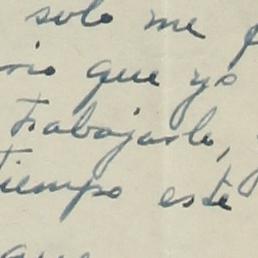 solo me p
rio que yo
trabajarlo,
tiempo este
que